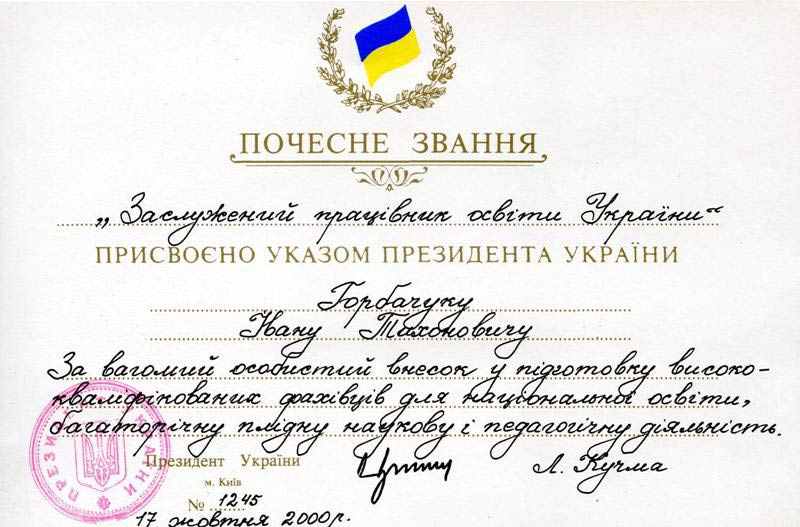 ПОЧЕСНЕ ЗВАННЯ
„Заслужений працівник освіти України“
ПРИСВОЄНО УКАЗОМ ПРЕЗИДЕНТА УКРАЇНИ
Горбачуку
Івану Тихоновичу
За вагомий особистий внесок у підготовку високо-
кваліфікованих фахівців для національної освіти,
багаторічну плідну наукову і педагогічну діяльність.
Президент України Л. Кучма
м. Київ
№ 1245
17 жовтня 2000р.